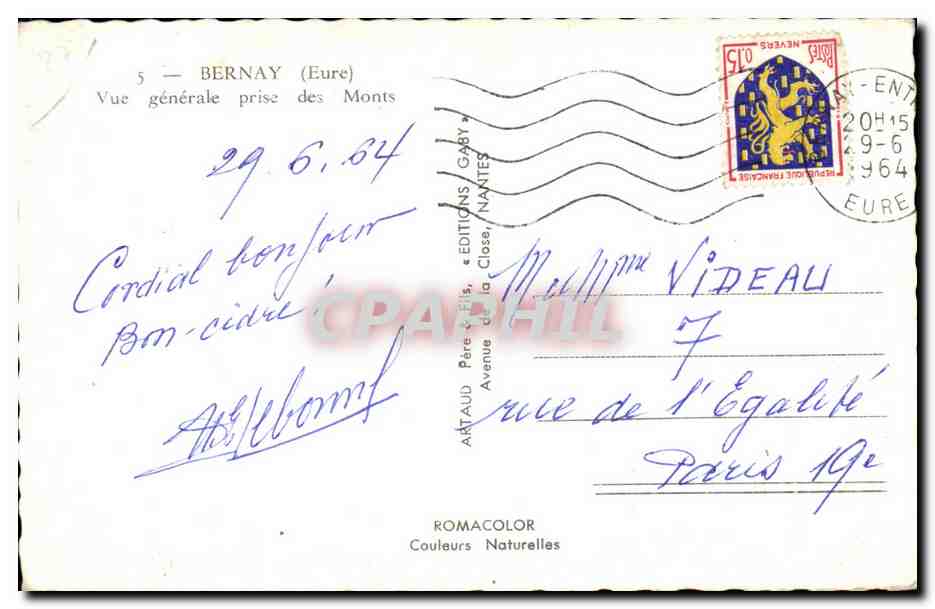 5 — BERNAY (Eure)
Vue générale prise des Monts
29.6.64
Cordial bonjour
Bon-cidre!
ARTAUD Père & Fils, « EDITIONS GABY »
Avenue de la Close, NANTES
POSTES 0,15
NEVERS
REPUBLIQUE FRANCAISE
20H15
29-6
964
EURE
M et Mme VIDEAU
7
rue de l'Egalité
Paris 19e
CPAPHIL
ROMACOLOR
Couleurs Naturelles